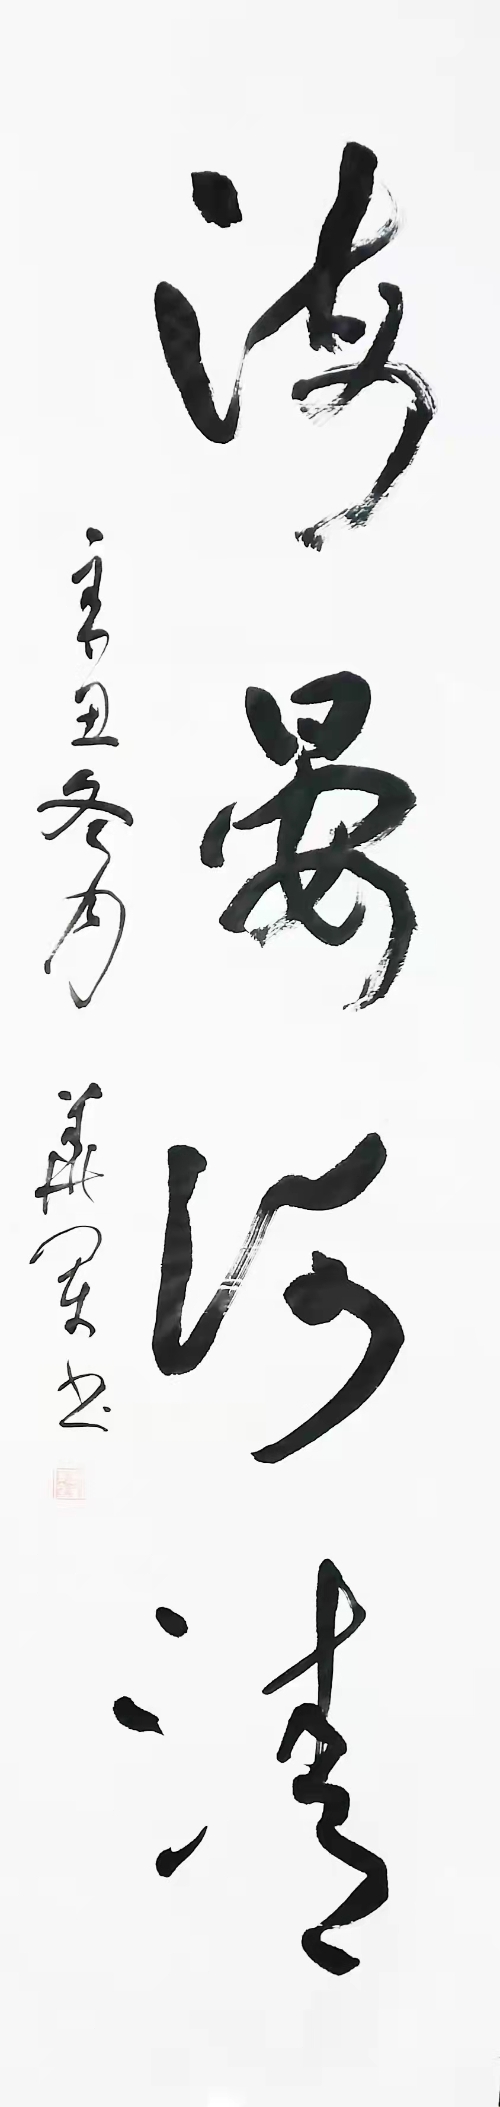 海晏河清
辛丑冬月 華軍书